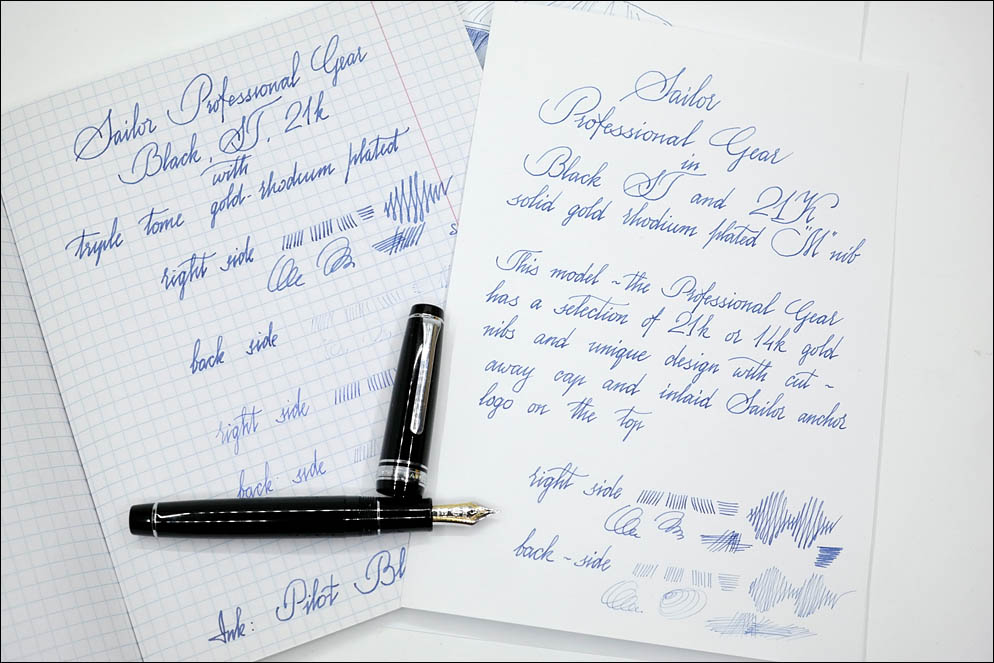 Sailor Professional Gear
Black, ST, 21k
with
triple tome gold-rhodium plated
right side
back side
right side
back side
Ink: Pilot Bl
Sailor
Professional Gear
in
Black ST and 21K
solid gold rhodium plated "M" nib
This model ~ the Professional Gear
has a selection of 21k or 14k gold
nibs and unique design with cut ~
away cap and inlaid Sailor anchor
logo on the top
right side
back ~ side